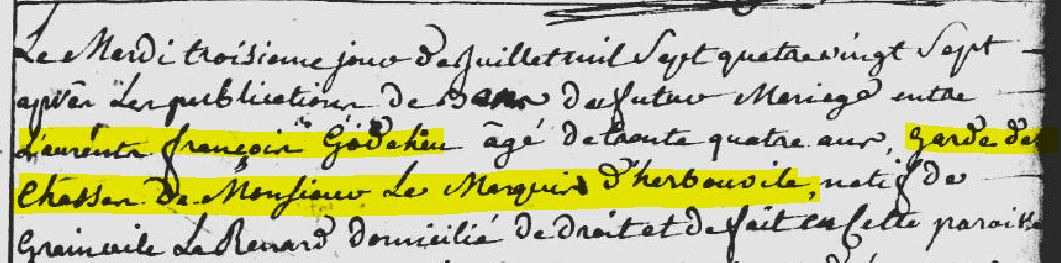 Le Mardi troisieme jour de Juillet mil Sept quatre vingt Sept
après Les publications de Bans du futur Mariage entre
Laurents françois Godeheu âgé de trente quatre ans, garde des
Chasses de Monsieur Le Marquis d'herbouvile, natif de
Grainvile La Renard domicilié de droit et de fait en Cette paroisse